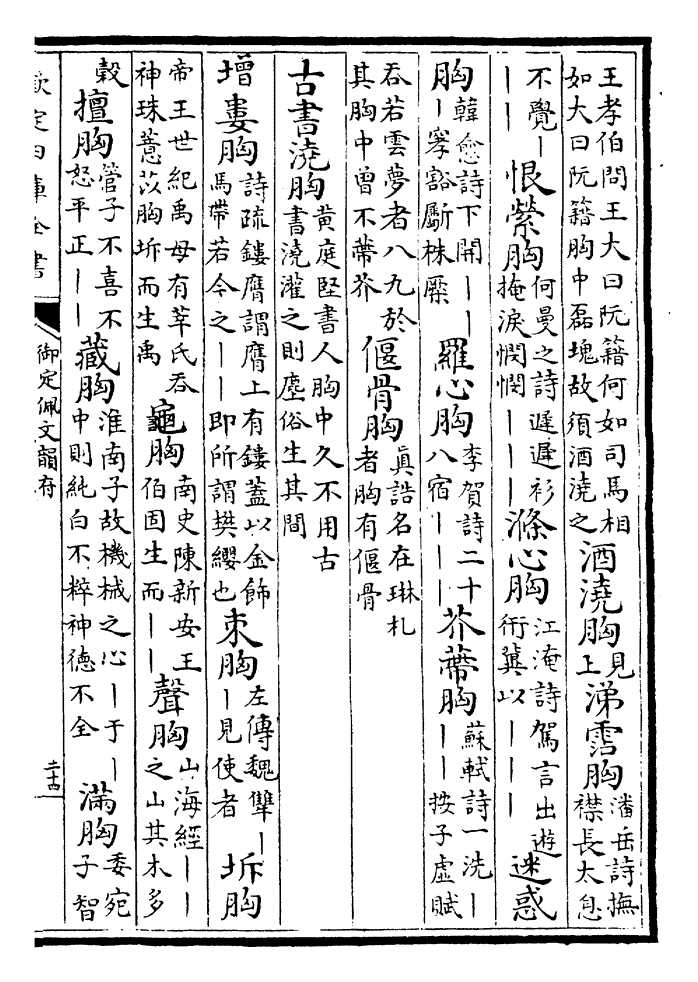 王孝伯問王大曰阮籍何如司馬相
如大曰阮籍胸中磊塊故須酒澆之
酒澆胸
見
上
涕霑胸
潘岳詩撫
襟長太息
不覺丨
丨丨
恨縈胸
何曼之詩遲遲衫
掩淚憫憫丨丨丨
滌心胸
江淹詩駕言出遊
衍冀以丨丨丨
迷惑
胸
韓愈詩下開丨丨
丨豁斸株橜
羅心胸
李賀詩二十
八宿丨丨丨
芥蔕胸
蘇軾詩一洗丨
丨丨按子虛賦
吞若雲夢者八九於
其胸中曾不蔕芥
偃骨胸
真誥名在琳札
者胸有偃骨
古書澆胸
黃庭堅書人胸中久不用古
書澆灌之則塵俗生其間
增
婁胸
詩疏鏤膺謂膺上有鏤蓋以金飾
馬帶若今之丨丨即所謂樊纓也
束胸
左傳魏犨丨
丨見使者
坼胸
帝王世紀禹母有莘氏吞
神珠薏苡胸坼而生禹
龜胸
南史陳新安王
伯固生而丨丨
聲胸
山海經丨丨
之山其木多
穀
擅胸
管子不喜不
怒平正丨丨
藏胸
淮南子故機械之心丨于丨
中則純白不粹神德不全
滿胸
委宛
子智
欽定四庫全書
御定佩文韻府
二十四